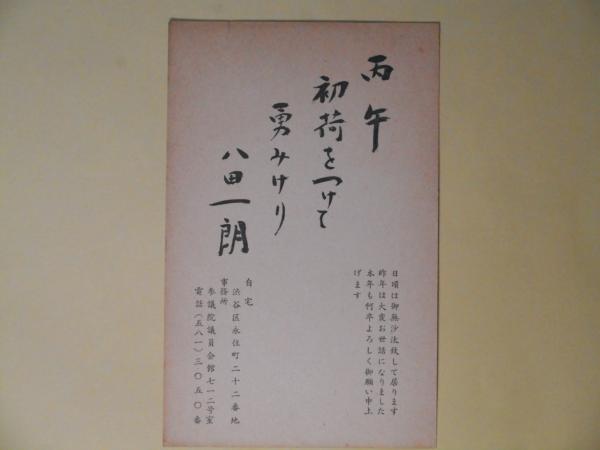 丙午
初荷をつけて
勇みけり
八田一朗
日頃は御無沙汰致して居ります
昨年は大変お世話になりました
本年も何卒よろしく御願い申上
げます
自宅
渋谷区永住町二十二番地
事務所
参議院議員会館七一二号室
電話(五八一)三〇五〇番